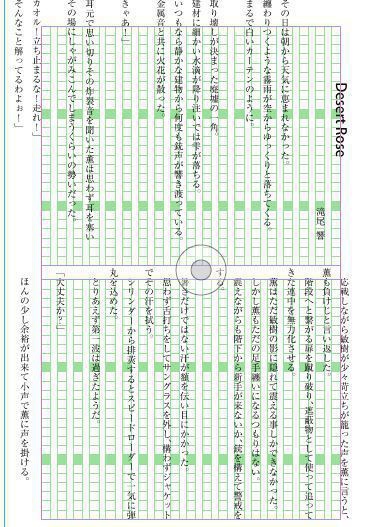 Desert Rose
滝尾 響
その日は朝から天気に恵まれなかった。
纏わりつくような霧雨が空からゆっくりと落ちてくる。
まるで白いカーテンのように。
取り壊しが決まった廃墟の一角。
建材に細かい水滴が降り注いでは雫が落ちる。
いつもなら静かな建物から何度も銃声が響き渡っている。
金属音と共に火花が散った。
きゃあ!」
耳元で思い切りその炸裂音を聞いた薫は思わず耳を塞い
その場にしゃがみこんでしまうくらいの勢いだった。
カオル!立ち止まるな!走れ!」
そんなこと解ってるわよぉ!」
応戦しながら敏樹が少々苛立ちが籠った声を薫に言うと、
薫も負けじと言い返した。
階段へと繋がる扉を蹴り破り、遮蔽物として使って追って
きた連中を無力化させる。
薫はただ敏樹の影に隠れて震える事しかできなかった。
しかし薫もただの足手纏いになるつもりはない。
震えながらも階下から新手が来ないか、銃を構えて警戒を
する。
暑さだけではない汗が額を伝い目にかかった。
思わず舌打ちをしてサングラスを外し、構わずジャケット
でその汗を拭う。
シリンダーから排莢するとスピードローダーで一気に弾
丸を込めた。
とりあえず第一波は過ぎたようだ。
「大丈夫か?」
ほんの少し余裕が出来て小声で薫に声を掛ける。